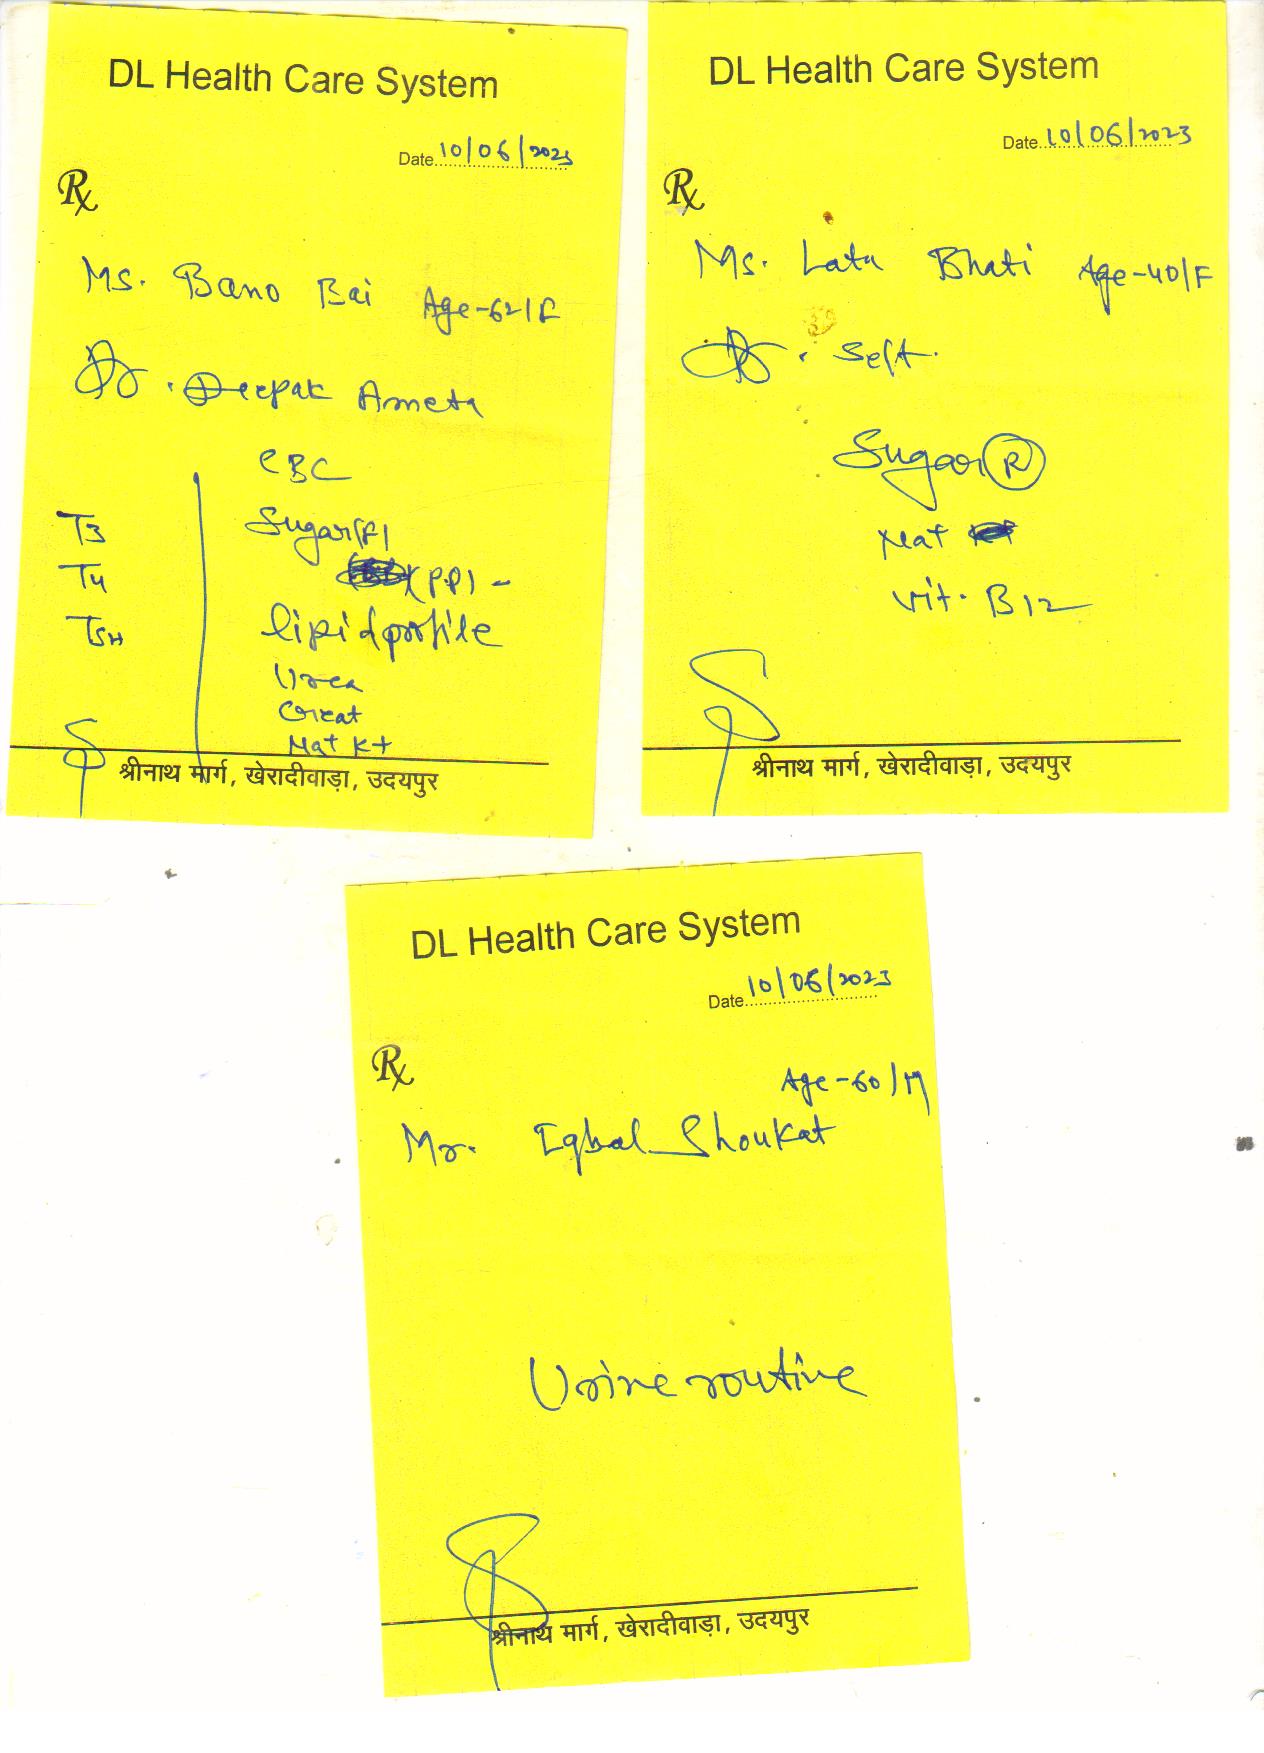 DL Health Care System
Date 10/06/2023
Rx
Ms. Bano Bai Age-62/F
Dr. Deepak Ameta
CBC
T3
Sugar(F)
T4
(PP) -
TSH
lipid profile
Urea
Creat
Na+ K+
श्रीनाथ मार्ग, खेरादीवाड़ा, उदयपुर
DL Health Care System
Date 10/06/2023
Rx
Ms. Lata Bhati Age-40/F
Dr. Self.
Sugar (R)
Na+
Vit. B12
श्रीनाथ मार्ग, खेरादीवाड़ा, उदयपुर
DL Health Care System
Date 10/06/2023
Rx
Age-60/M
Mr. Iqbal Shoukat
Urine routine
श्रीनाथ मार्ग, खेरादीवाड़ा, उदयपुर